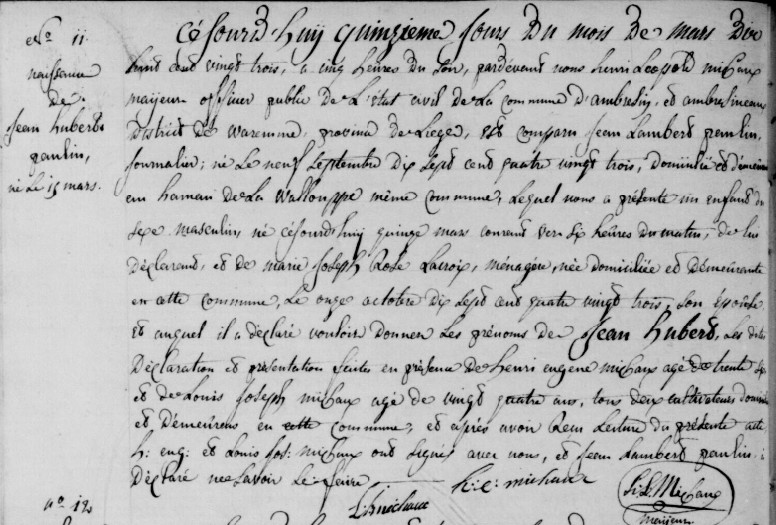 N.º 11
naissance
de
jean hubert
paulin,
né le 15 mars.
céjourd'huy quinzieme jours du mois de mars dix
huit cent vingt trois, a cinq heures du soir, pardévant nous henri Leopold michaux
maijeur officier public de L'état civil de La commune d'ambresin, et ambresineaux
district de waremme, province de Liege, est comparu jean Lambert paulin,
journalier; né Le neuf septembre dix sept cent quatre vingt trois, domiciliée et demeurant
au hamau de La Wallouppe même commune, Lequel nous a présenté un enfant du
sexe masculin, né céjourd'huy quinze mars courant vers six heures du matin, de lui
déclarant, et de marie joseph Rose Lacroix, ménagère, née domiciliée et demeurante
en cette commune, Le onze octobre dix sept cent quatre vingt trois, son épouse
et auquel il a déclaré vouloir donner Les prénoms de jean hubert, Les dites
déclaration et présentation faites en présence de henri eugene michaux agé de trente six
et de Louis joseph michaux agé de vingt quatre ans, tous deux cultivateurs
et demeurens en cette commune, et après avoir Leur Lecture du présente acte
h: eug: et Louis jos: michaux ont signés avec nous, et jean Lambert paulin a
déclaré ne savoir Le faire.
h: e: michaux
L: j michaux
h: L: Michaux
maijeur
n.º 12